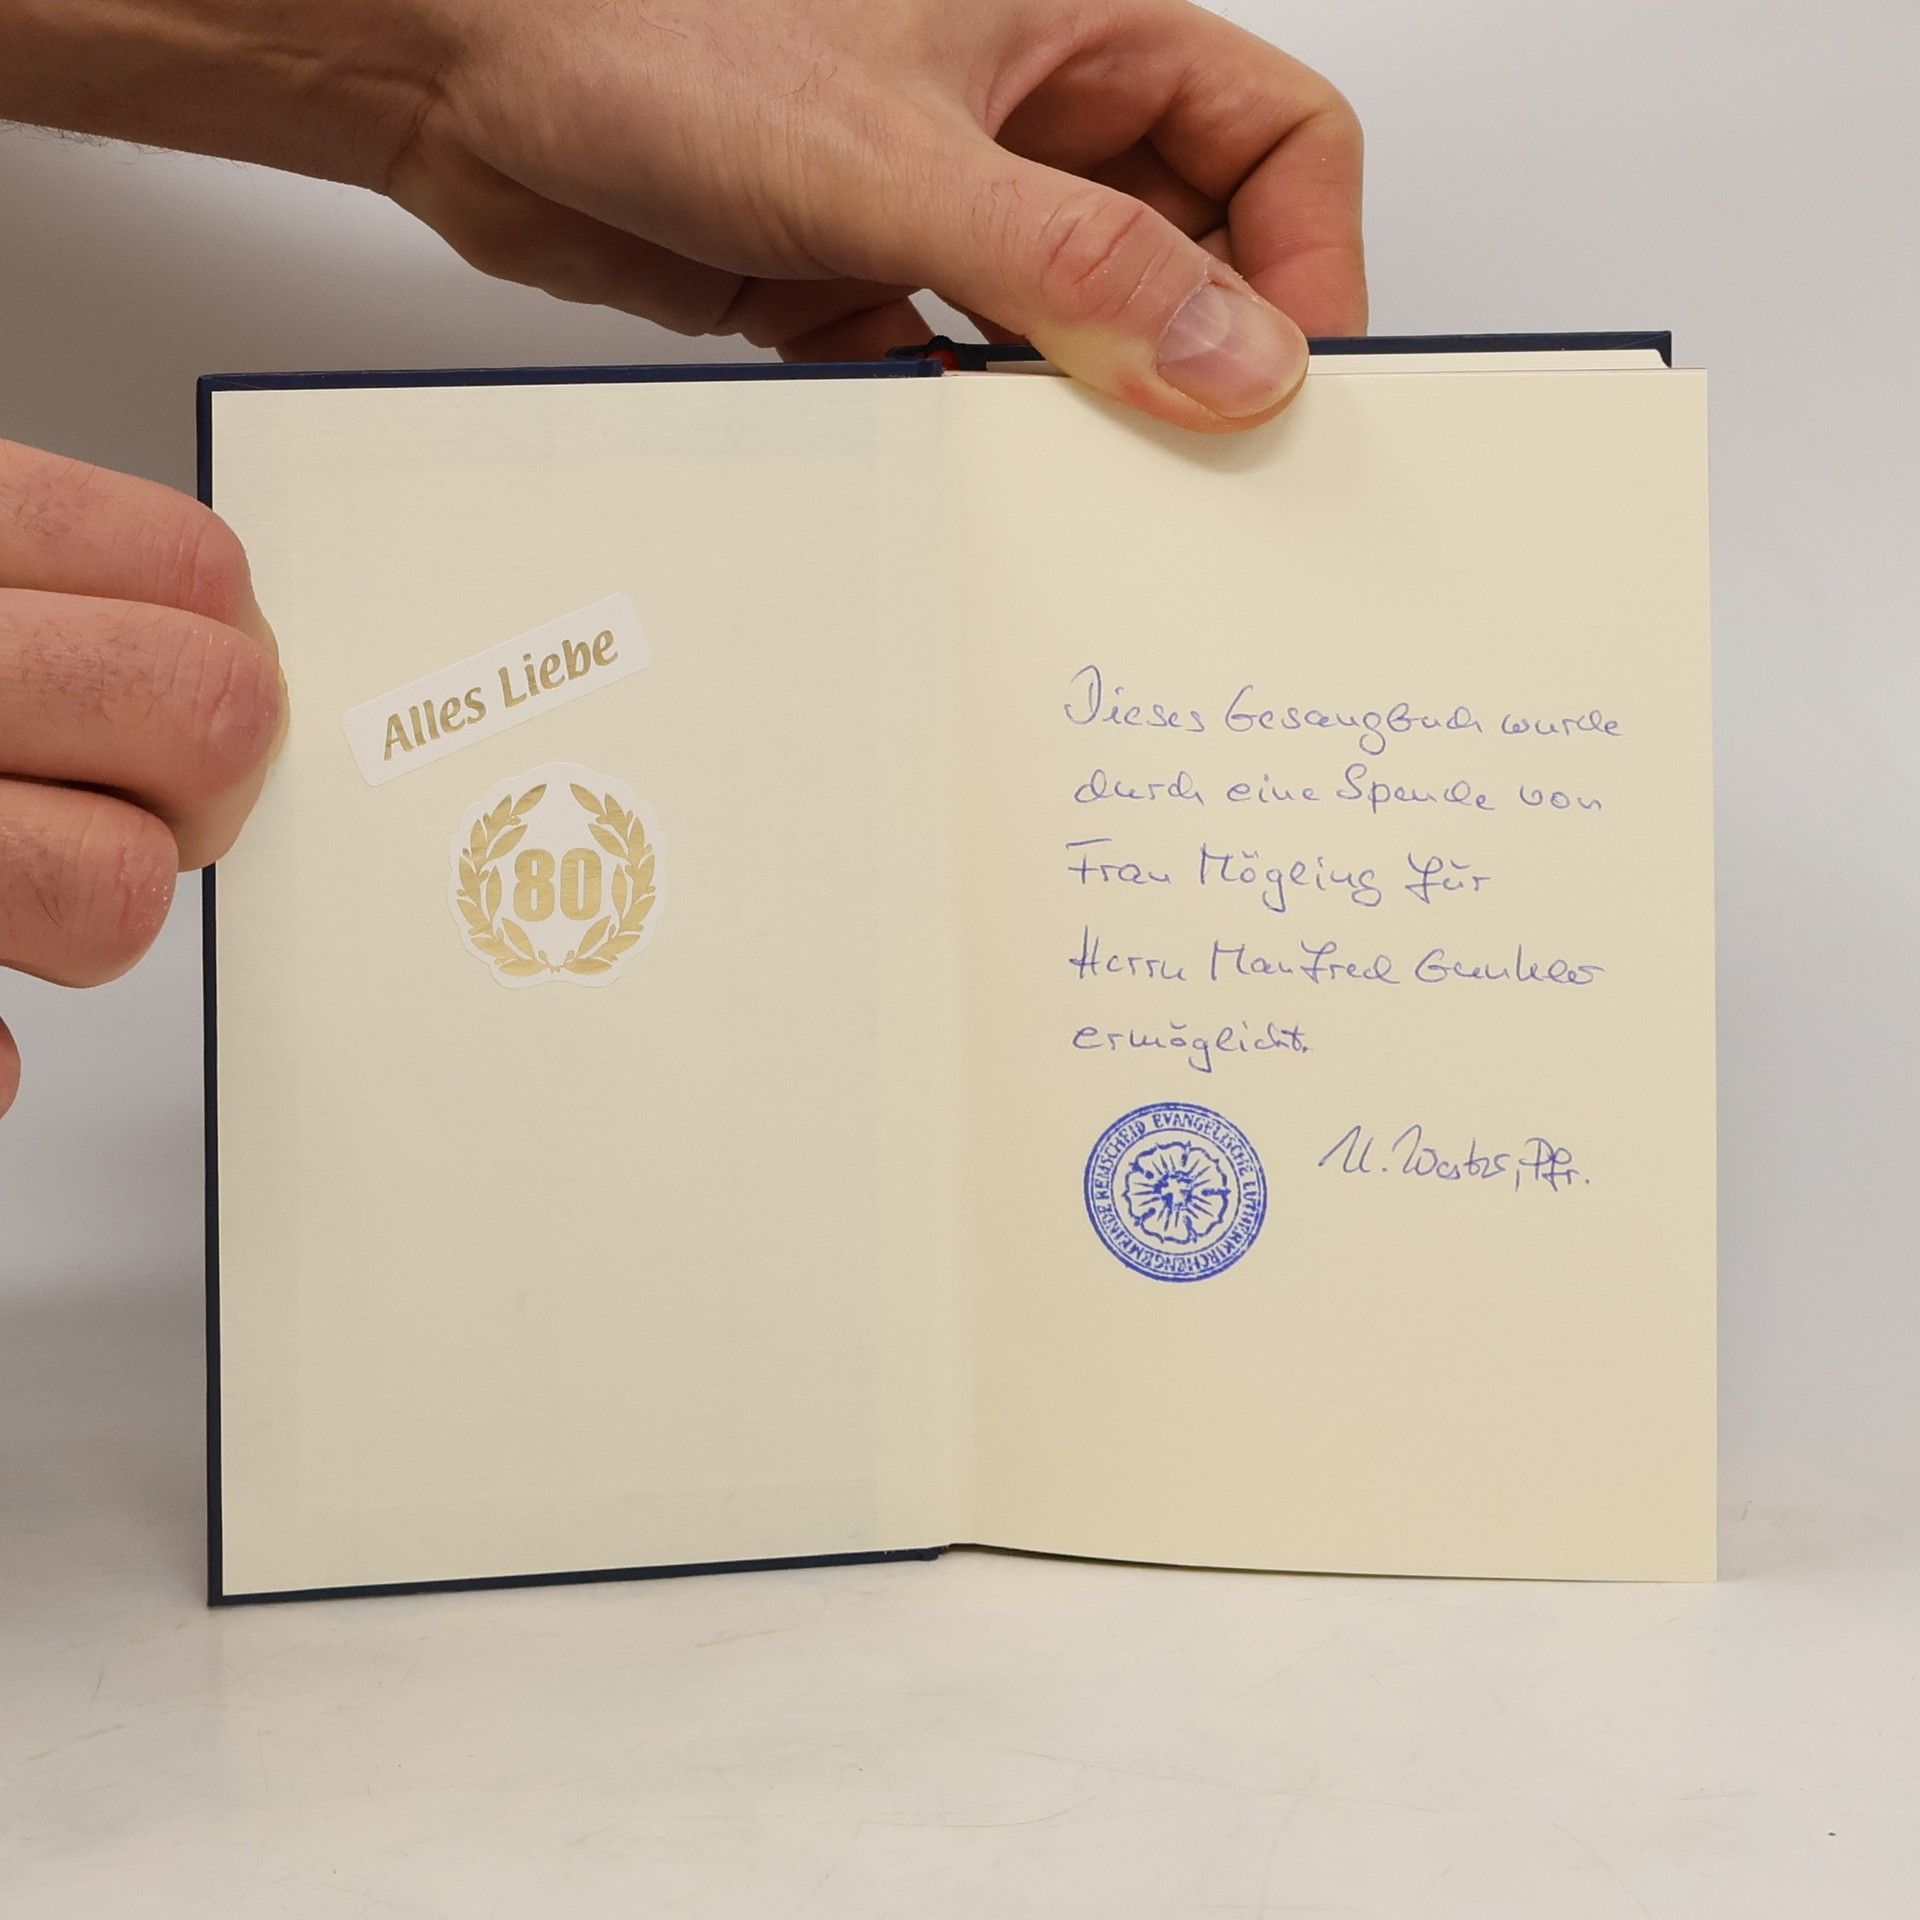 Alles Liebe
80
Dieses Gesangbuch wurde
durch eine Spende von
Frau Mögling für
Herrn Manfred
ermöglicht.
EVANGELISCHE LUTHERKIRCHENGEMEINDE REMSCHEID
Pfr.